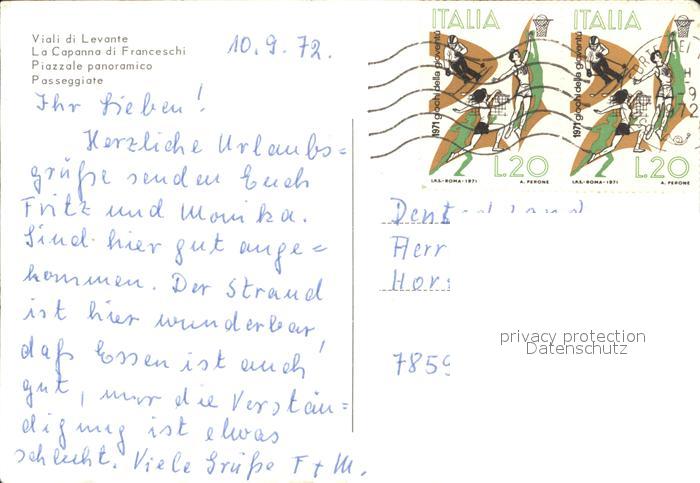 Viali di Levante
La Capanna di Franceschi
Piazzale panoramico
Passeggiate
10.9.72.
Ihr Lieben!
Herzliche Urlaubs=
grüße senden Euch
Fritz und Monika.
Sind hier gut ange=
kommen. Der Strand
ist hier wunderbar,
daß Essen ist auch
gut, nur die Verstän=
digung ist etwas
schlecht. Viele Grüße F + M.
ITALIA
1971 giochi della gioventù
L.20
I.P.S.-ROMA-1971 A. PERONE
ITALIA
1971 giochi della gioventù
L.20
I.P.S.-ROMA-1971 A. PERONE
Herr
7859
privacy protection
Datenschutz